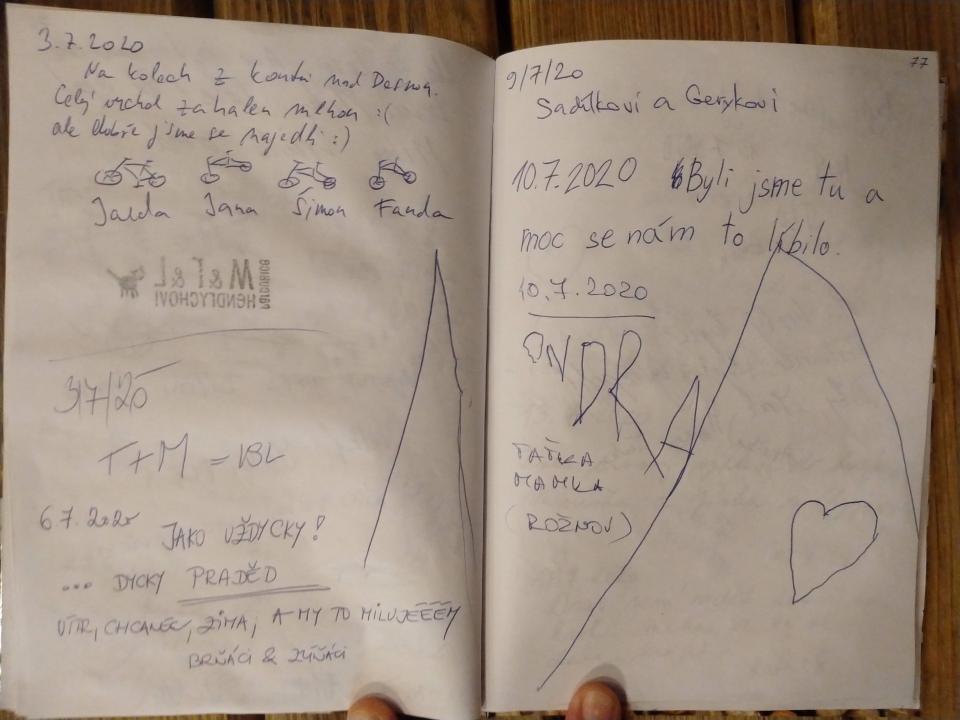 3.7.2020
Na kolech z Koutů nad Desnou.
Celý vrchol zahalen mlhou :(
ale dobře jsme se najedli :)
Jarda Jana Šimon Fanda
M & T & L
HENDRYCHOVI
3/7/20
T + M = VBL
6.7.2020
JAKO VŽDYCKY!
... DYCKY PRADĚD
VÍTR, CHCANEC, ZIMA, A MY TO MILUJEĚĚĚM
BRŇÁCI & ZLÍŇÁCI
77
9/7/20
Sadílkovi a Gerykovi
10.7.2020 Byli jsme tu a
moc se nám to líbilo.
10.7.2020
ONDRA
TAŤKA
MAMKA
(ROŽNOV)